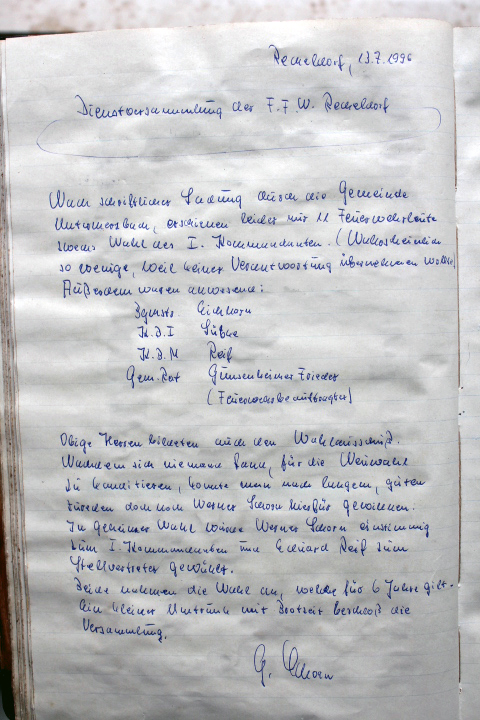 Recheldorf, 13.7.1996
Dienstversammlung der F.F.W. Recheldorf
Nach schriftlicher Ladung durch die Gemeinde
Untermerzbach, erschienen leider nur 11 Feuerwehrleute
zwecks Wahl des I. Kommandanten. (Wahrscheinlich
so wenige, weil keiner Verantwortung übernehmen wollte.
Außerdem waren anwesend:
Bgmstr Eichhorn
K.B.I
K.B.M Reiß
Gem.Rat Günsenheimer Frieder
(Feuerwehrbeauftragter)
Obige Herren bildeten auch den Wahlausschuß.
Nachdem sich niemand fand, für die Neuwahl
zu kanditieren, konnte man nach langem, guten
zureden doch noch Werner Schorn hierfür gewinnen.
In geheimer Wahl wurde Werner Schorn einstimmig
zum I. Kommandanten und Eduard Reiß zum
Stellvertreter gewählt.
Beide nahmen die Wahl an, welche für 6 Jahre gilt.
Ein kleiner Umtrunk mit Brotzeit beschloß die
Versammlung.
G. Schorn